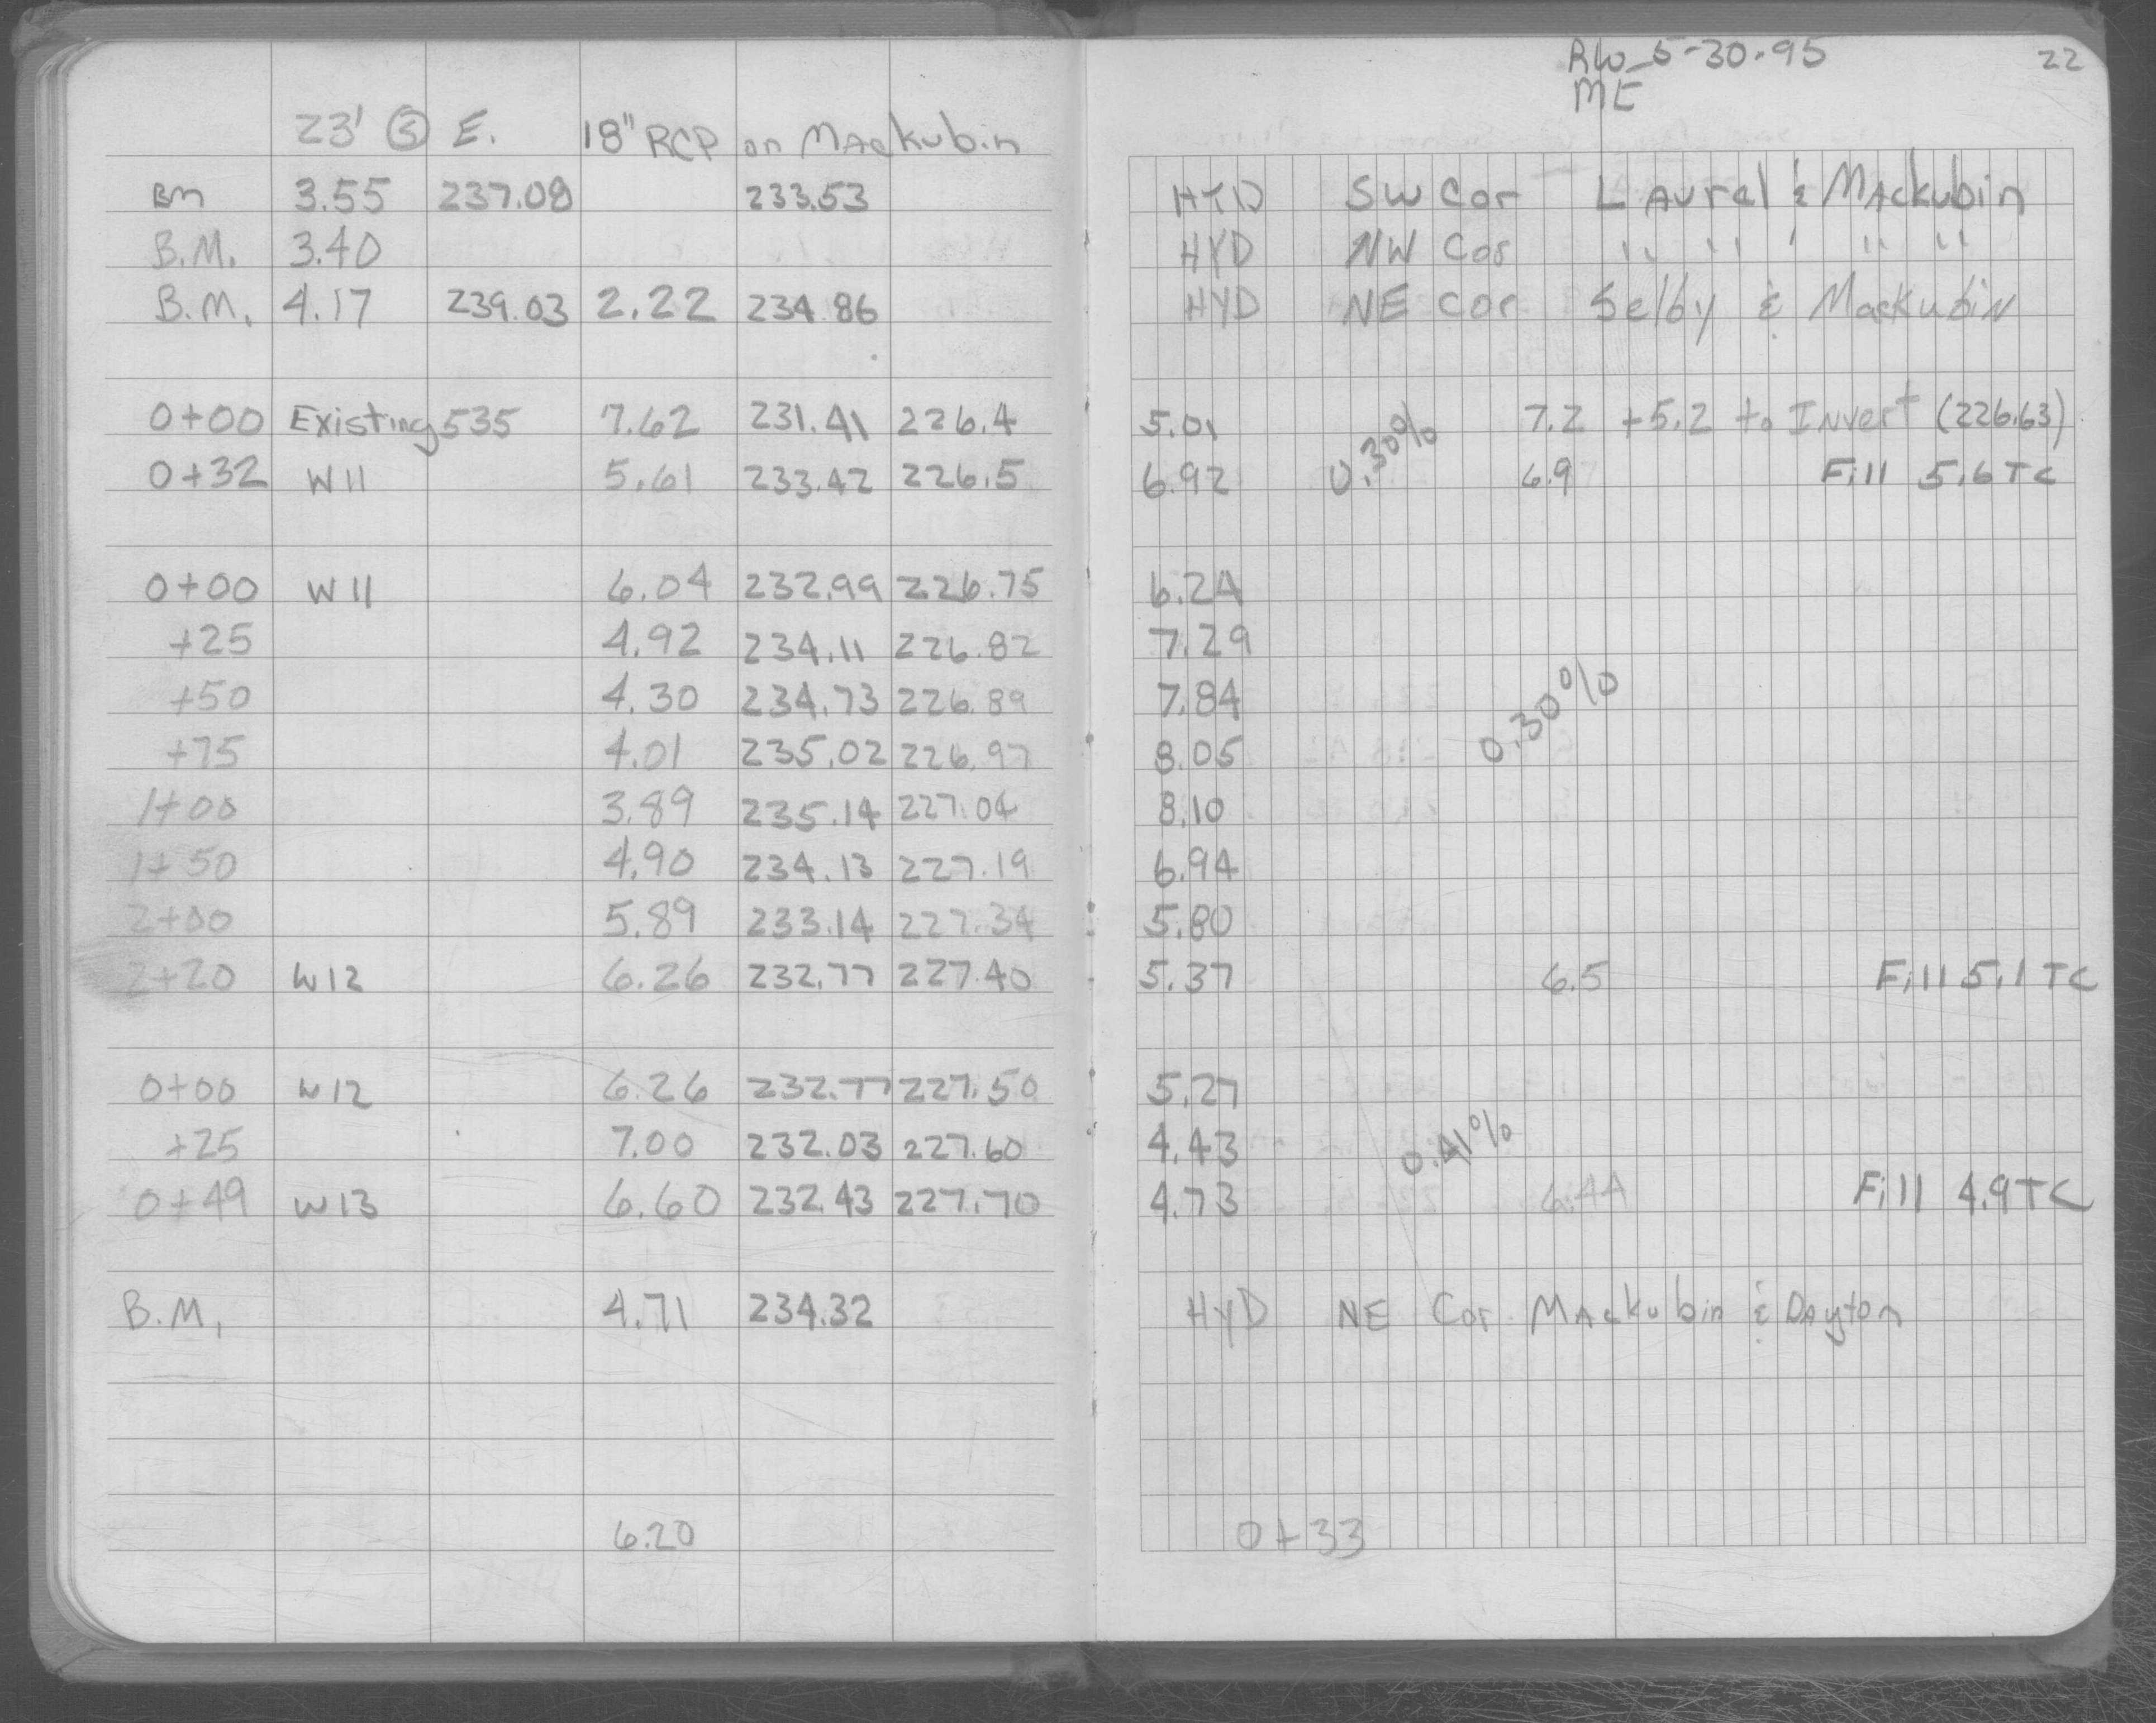 RW 5-30-95 22
ME
23' Ⓢ E. 18" RCP on Mackubin
BM 3.55 237.08 233.53 HYD SW Cor Laurel & Mackubin
B.M. 3.40 HYD NW Cor " " ' " "
B.M. 4.17 239.03 2.22 234.86 HYD NE Cor Selby & Mackubin
0+00 Existing 535 7.62 231.41 226.4 5.01 0.30% 7.2 +5.2 to Invert (226.63)
0+32 W11 5.61 233.42 226.5 6.92 6.9 Fill 5.6 TC
0+00 W11 6.04 232.99 226.75 6.24
+25 4.92 234.11 226.82 7.29
+50 4.30 234.73 226.89 7.84 0.30%
+75 4.01 235.02 226.97 8.05
1+00 3.89 235.14 227.04 8.10
1+50 4.90 234.13 227.19 6.94
2+00 5.89 233.14 227.34 5.80
2+20 W12 6.26 232.77 227.40 5.37 6.5 Fill 5.1 TC
0+00 W12 6.26 232.77 227.50 5.27
+25 7.00 232.03 227.60 4.43 0.41%
0+49 W13 6.60 232.43 227.70 4.73 6.44 Fill 4.9 TC
B.M. 4.71 234.32 HYD NE Cor Mackubin & Dayton
6.20 0+33